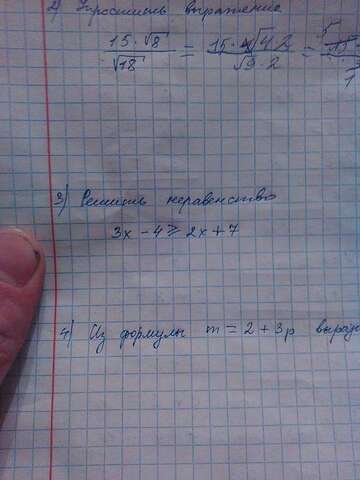 2) Упростить выражение
15·√8 / √18 = 15·√4·2 / √9·2 =
3) Решить неравенство
3x − 4 ≥ 2x + 7
4) Из формулы m = 2 + 3p